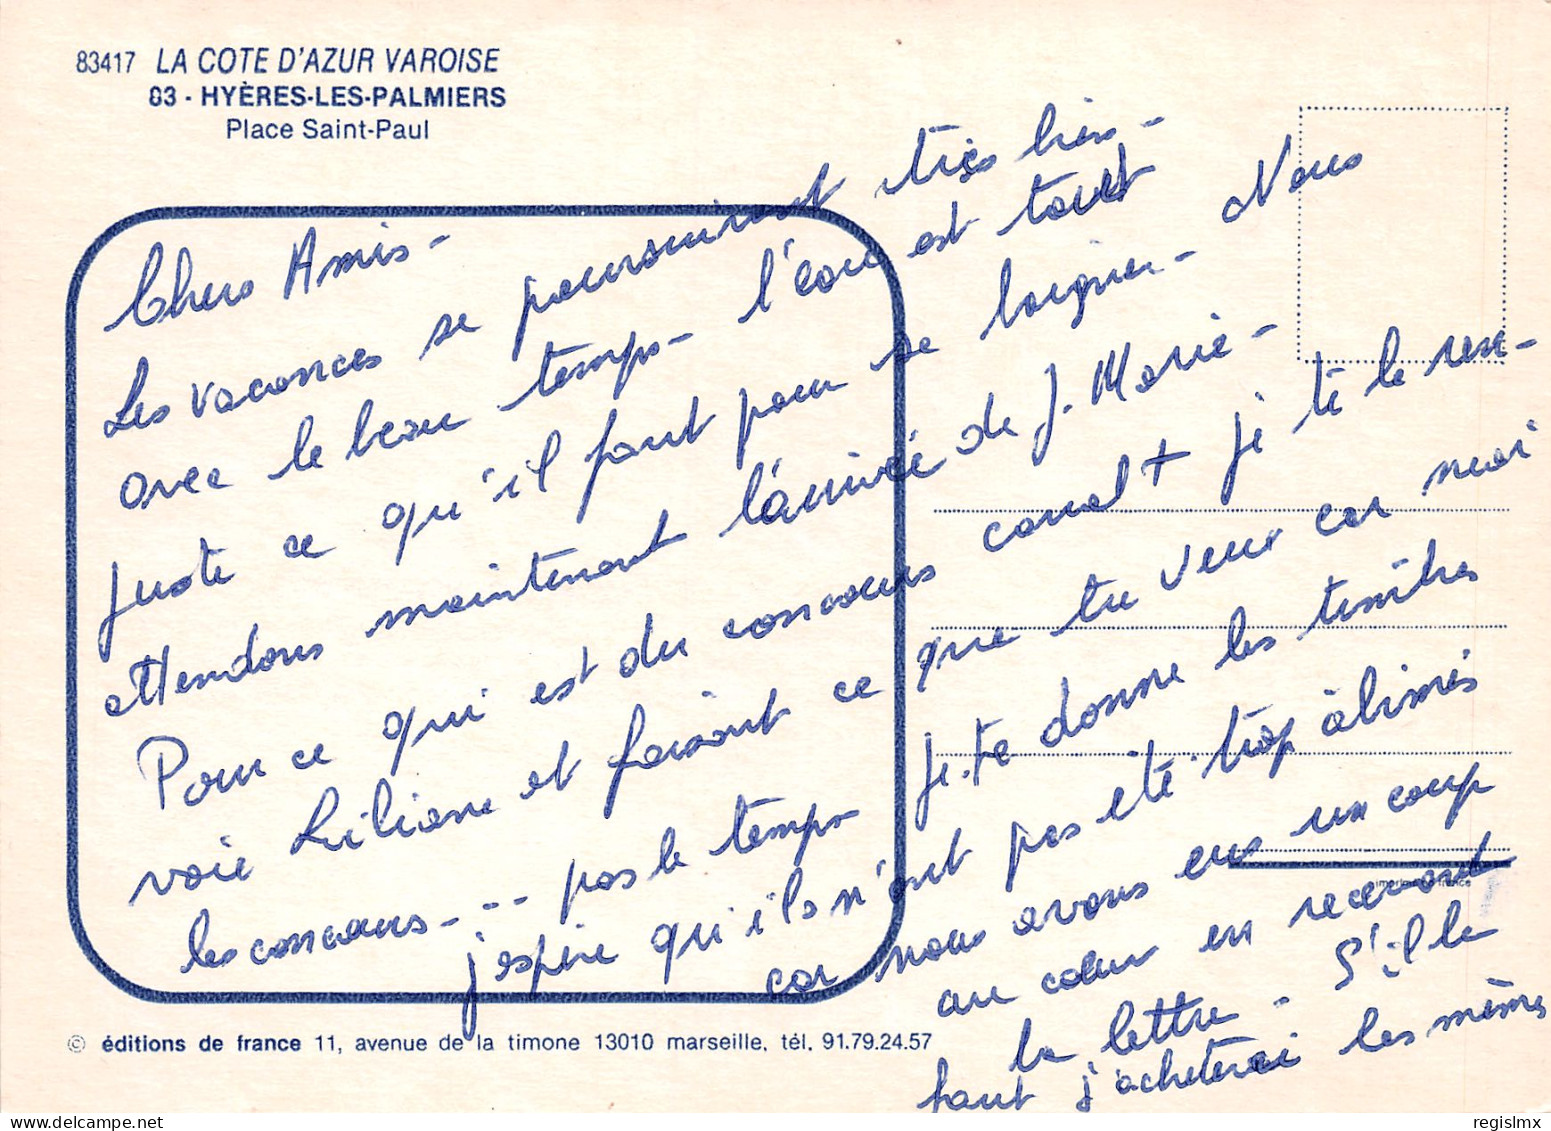 83417 LA COTE D'AZUR VAROISE
83 - HYÈRES-LES-PALMIERS
Place Saint-Paul
Chers Amis -
Les vacances se poursuivent très bien -
avec le beau temps - l'eau est tout
juste ce qu'il faut pour se baigner - Nous
attendons maintenant l'arrivée de J. Marie -
Pour ce qui est du concours canal + je te le ren-
voie Liliane et faisant ce que tu veux car moi
les concours - -- pas le temps je te donne les timbres
j'espère qu'ils n'ont pas été trop abimés
car nous avons eus un coup
au cœur en recevant
la lettre - S'il le
faut j'acheterai les mêmes
imprimé france
© éditions de france 11, avenue de la timone 13010 marseille, tél. 91.79.24.57
regislmx